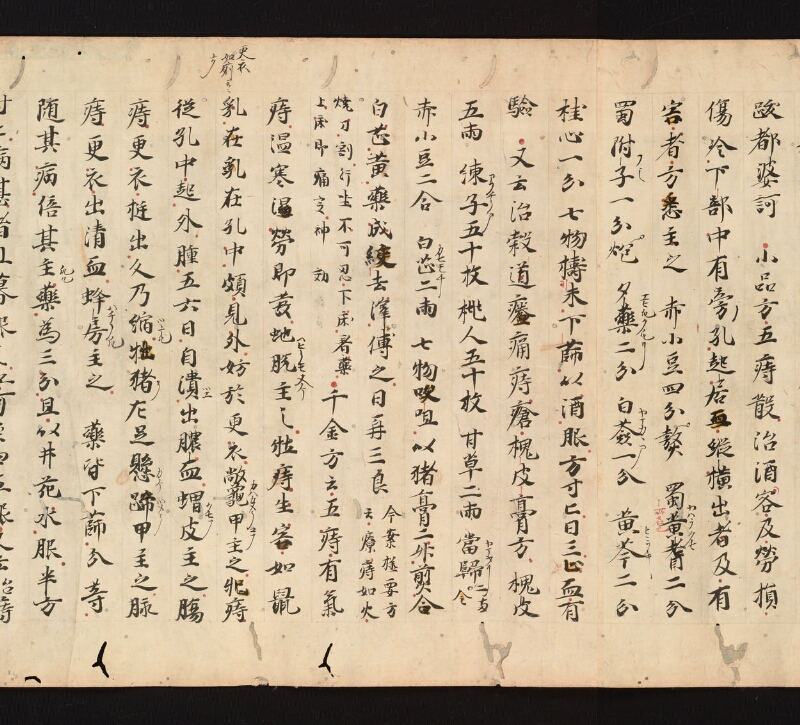 跋都婆訶 小品方五痔散治酒客及勞損
傷冷下部中有旁孔起居血縱横出者及有
害者方悉主之 赤小豆四分熬 蜀黄耆二分
蜀附子一分炮 夕藥二分 白薟一分 黄芩二分
桂心一分 七物擣末下篩以酒服方寸匕日三止血有
驗 又云治榖道癢痛痔瘡槐皮膏方 槐皮
五兩 練子五十枚 桃人五十枚 甘草二兩 當歸二兩
赤小豆二合 白芷二兩 七物㕮咀以猪膏二升煎合
白芷黄藥成絞去滓傅之日再三良 今案極要方
云療痔如火
燒刀割行坐不可忍下床着藥
上床即痛定神効 千金方云五痔有氣
痔温寒濕勞即發虵脱主之牡痔生害如鼠
乳在乳在孔中頗見外妨於更衣鱉甲主之牝痔
從孔中起外腫五六日自潰出膿血蝟皮主之腸
痔更衣挺出久乃縮牡猪左足懸蹄甲主之脉
痔更衣出清血蜂房主之 藥皆下篩分等
随其病倍其主藥為三分且以井苑水服半方